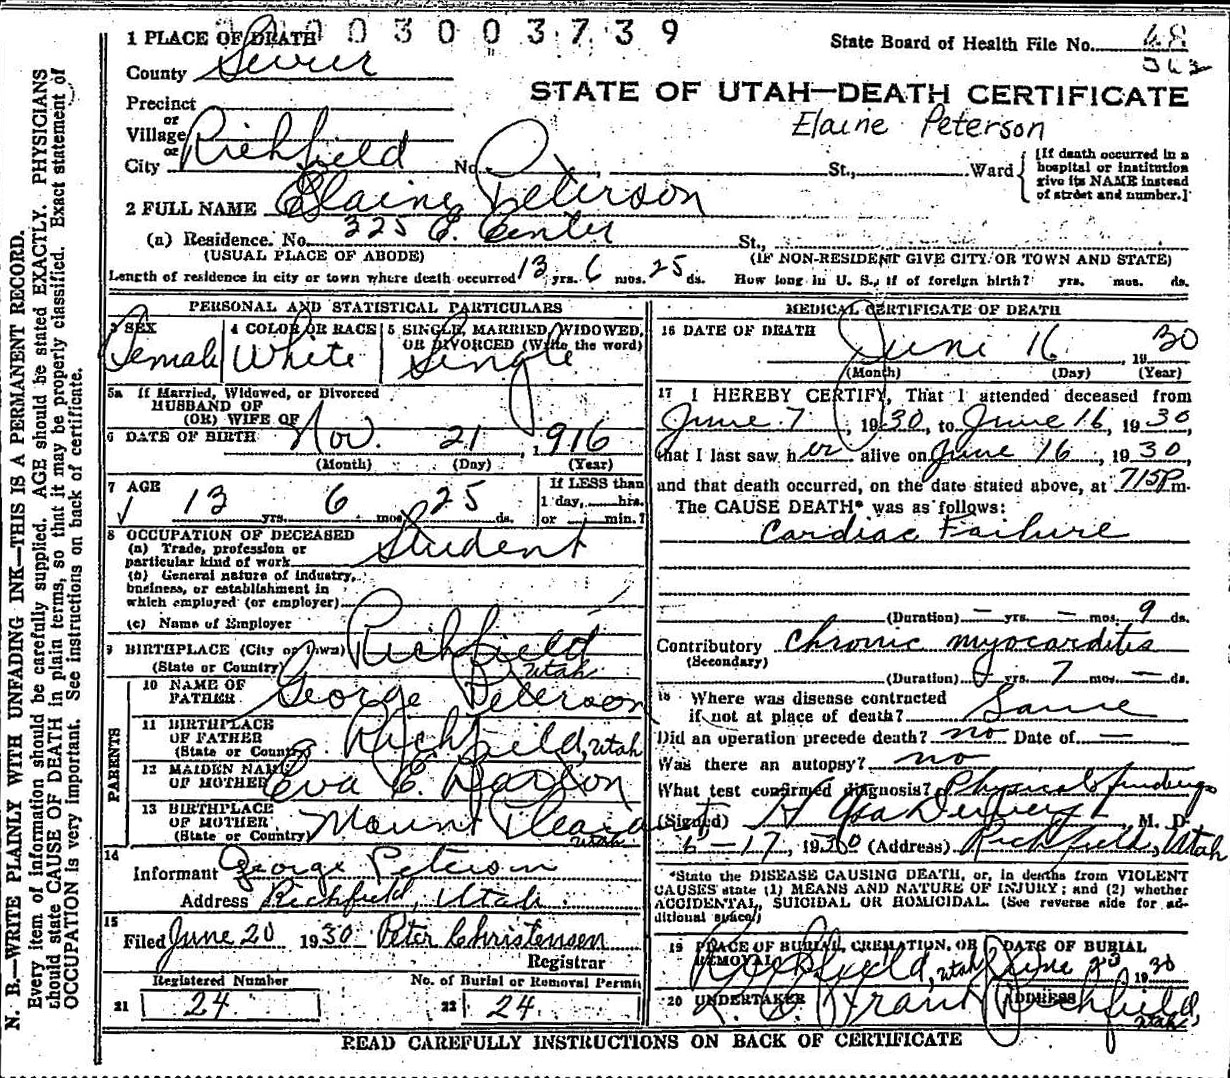 3 0 0 3 7 3 9
1 PLACE OF DEATH
State Board of Health File No. 48
County Sevier
STATE OF UTAH—DEATH CERTIFICATE
Precinct
or
Elaine Peterson
Village
or
City Richfield No. St., Ward
[If death occurred in a
hospital or institution
give its NAME instead
of street and number.]
2 FULL NAME Elaine Peterson
(a) Residence. No. 325 E. Center St.,
(USUAL PLACE OF ABODE) (IF NON-RESIDENT GIVE CITY OR TOWN AND STATE)
Length of residence in city or town where death occurred 13 yrs. 6 mos. 25 ds. How long in U. S., if of foreign birth? yrs. mos. ds.
PERSONAL AND STATISTICAL PARTICULARS
3 SEX Female
4 COLOR OR RACE White
5 SINGLE, MARRIED, WIDOWED,
OR DIVORCED (Write the word)
Single
5a If Married, Widowed, or Divorced
HUSBAND OF
(OR) WIFE OF
6 DATE OF BIRTH Nov. 21, 1916
(Month) (Day) (Year)
7 AGE
13 yrs. 6 mos. 25 ds.
If LESS than
1 day, hrs.
or min.?
8 OCCUPATION OF DECEASED
(a) Trade, profession or
particular kind of work Student
(b) General nature of industry,
business, or establishment in
which employed (or employer)
(c) Name of Employer
9 BIRTHPLACE (City or Town) Richfield
(State or Country) Utah
PARENTS
10 NAME OF
FATHER George Peterson
11 BIRTHPLACE
OF FATHER
(State or Country) Richfield, Utah
12 MAIDEN NAME
OF MOTHER Eva E.
13 BIRTHPLACE
OF MOTHER
(State or Country) Mount Pleasant
Utah
14
Informant George Peterson
Address Richfield, Utah
15
Filed June 20 1930 Peter Christensen
Registrar
Registered Number No. of Burial or Removal Permit
21 24 22 24
MEDICAL CERTIFICATE OF DEATH
16 DATE OF DEATH
June 16 1930
(Month) (Day) (Year)
17 I HEREBY CERTIFY, That I attended deceased from
June 7, 1930, to June 16, 1930,
that I last saw her alive on June 16, 1930,
and that death occurred, on the date stated above, at 715P m.
The CAUSE DEATH* was as follows:
Cardiac Failure
(Duration) – yrs. – mos. 9 ds.
Contributory Chronic myocarditis
(Secondary)
(Duration) 0 yrs. 7 mos. – ds.
18 Where was disease contracted
if not at place of death? Same
Did an operation precede death? no Date of —
Was there an autopsy? no
What test confirmed diagnosis? Physical findings
(Signed) M. D.
6-17, 1930 (Address) Richfield, Utah
*State the DISEASE CAUSING DEATH, or, in deaths from VIOLENT
CAUSES state (1) MEANS AND NATURE OF INJURY; and (2) whether
ACCIDENTAL, SUICIDAL OR HOMICIDAL. (See reverse side for ad-
ditional space.)
19 PLACE OF BURIAL, CREMATION, OR
REMOVAL
Richfield, Utah
DATE OF BURIAL
June 1930
20 UNDERTAKER
ADDRESS
Richfield,
Utah
READ CAREFULLY INSTRUCTIONS ON BACK OF CERTIFICATE
N. B.—WRITE PLAINLY WITH UNFADING INK—THIS IS A PERMANENT RECORD.
Every item of information should be carefully supplied. AGE should be stated EXACTLY. PHYSICIANS
should state CAUSE OF DEATH in plain terms, so that it may be properly classified. Exact statement of
OCCUPATION is very important. See instructions on back of certificate.